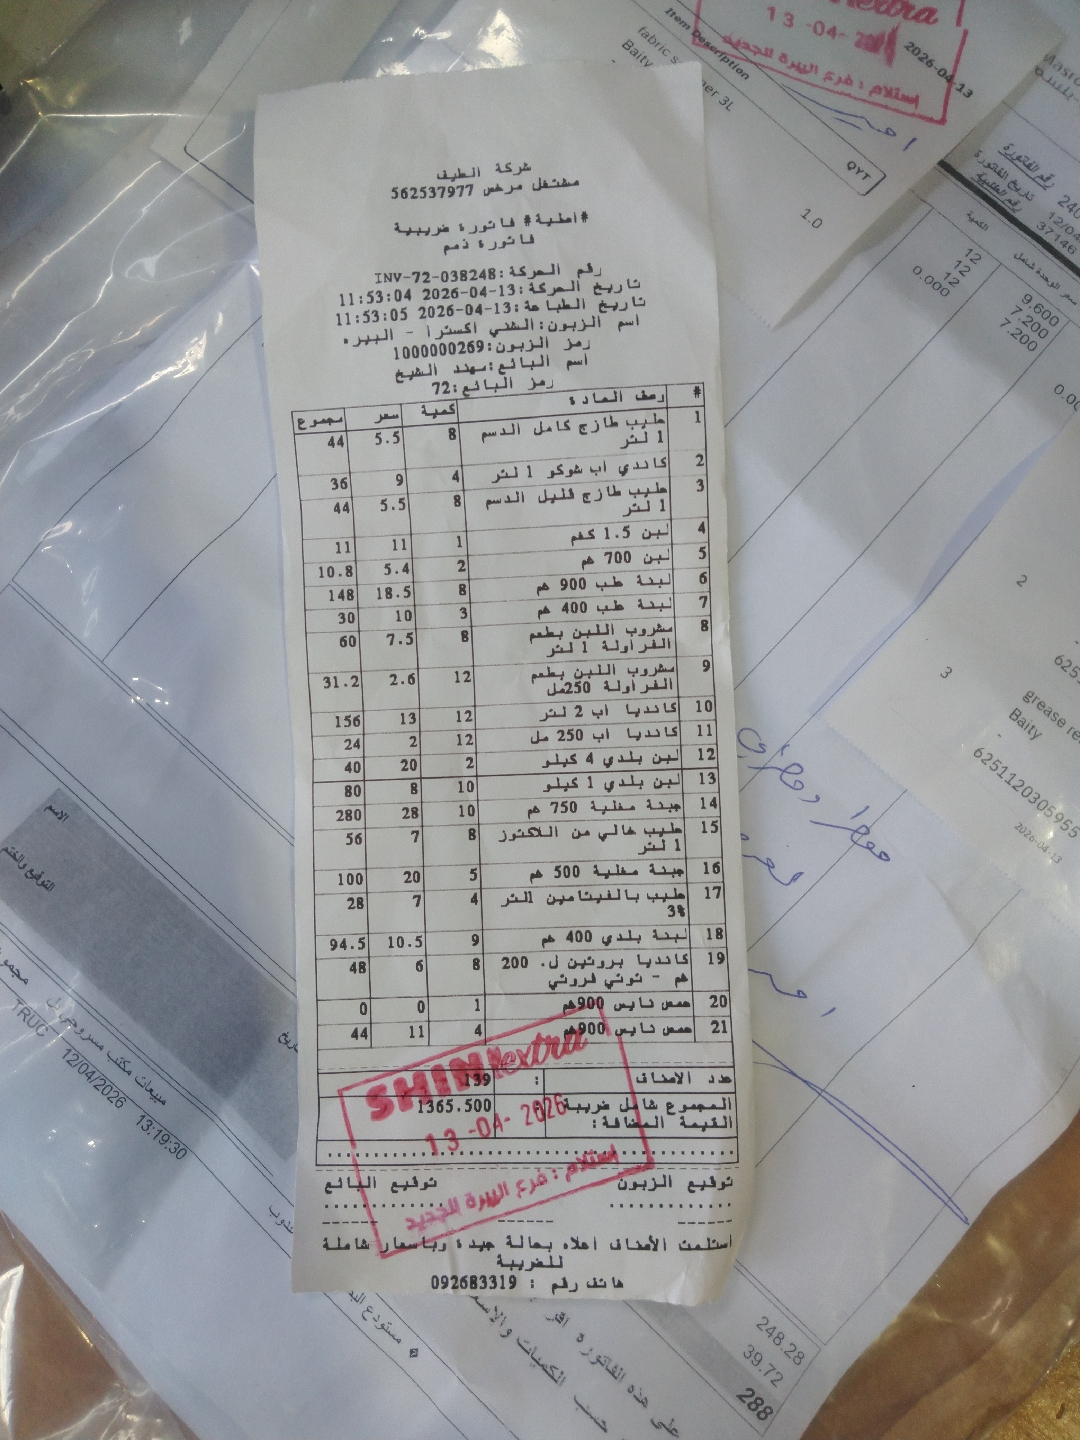 شركة الطيف
مشتغل مرخص 562537977
#أصلية# فاتورة ضريبية
فاتورة ذمم
رقم الحركة:INV-72-038248
تاريخ الحركة:2026-04-13 11:53:04
تاريخ الطباعة:2026-04-13 11:53:05
اسم الزبون:الشني اكسترا - البيره
رمز الزبون:1000000269
اسم البائع:مهند الشيخ
رمز البائع:72
# وصف المادة كمية سعر مجموع
1 حليب طازج كامل الدسم 8 5.5 44
1 لتر
2 كاندي اب شوكو 1 لتر 4 9 36
3 حليب طازج قليل الدسم 8 5.5 44
1 لتر
4 لبن 1.5 كغم 1 11 11
5 لبن 700 غم 2 5.4 10.8
6 لبنة طب 900 غم 8 18.5 148
7 لبنة طب 400 غم 3 10 30
8 مشروب اللبن بطعم 8 7.5 60
الفراولة 1 لتر
9 مشروب اللبن بطعم 12 2.6 31.2
الفراولة 250مل
10 كانديا اب 2 لتر 12 13 156
11 كانديا اب 250 مل 12 2 24
12 لبن بلدي 4 كيلو 2 20 40
13 لبن بلدي 1 كيلو 10 8 80
14 جبنة مغلية 750 غم 10 28 280
15 حليب خالي من اللاكتوز 8 7 56
1 لتر
16 جبنة مغلية 500 غم 5 20 100
17 حليب بالفيتامين 1لتر 4 7 28
3%
18 لبنة بلدي 400 غم 9 10.5 94.5
19 كانديا بروتين ل. 200 8 6 48
غم - توتي فروتي
20 حمص نايس 900غم 1 0 0
21 حمص نايس 900غم 4 11 44
عدد الاصناف : 139
المجموع شامل ضريبة 1365.500
القيمة المضافة:
SHINI extra
13-04-2026
استلام : فرع البيرة الجديد
توقيع الزبون توقيع البائع
استلمت الأصناف اعلاه بحالة جيدة وبأسعار شاملة
للضريبة
هاتف رقم : 092683319
extra
13-04-
استلام : فرع البيرة الجديد
2026-04-13
Item Description
QYT
Baity
1.0
رقم الفاتورة
تاريخ الفاتورة
12/04
37146
الكمية
سعر الوحدة شامل
12 9.600
12 7.200
0.000 7.200
2
3
grease re
Baity
6251120305955
2026-04-13
الاسم
التوقيع والختم
TRUC 12/04/2026 13:19:30
248.28
39.72
288
على هذه الفاتورة اقر
حسب الكميات والاسع